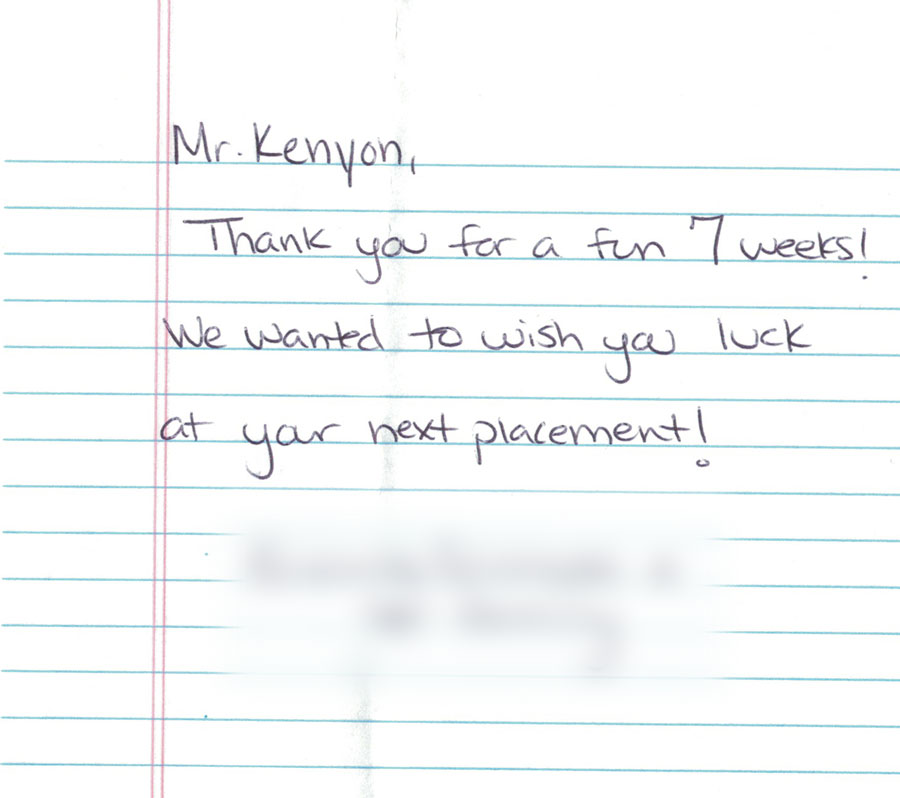 Mr. Kenyon,
Thank you for a fun 7 weeks!
We wanted to wish you luck
at your next placement!